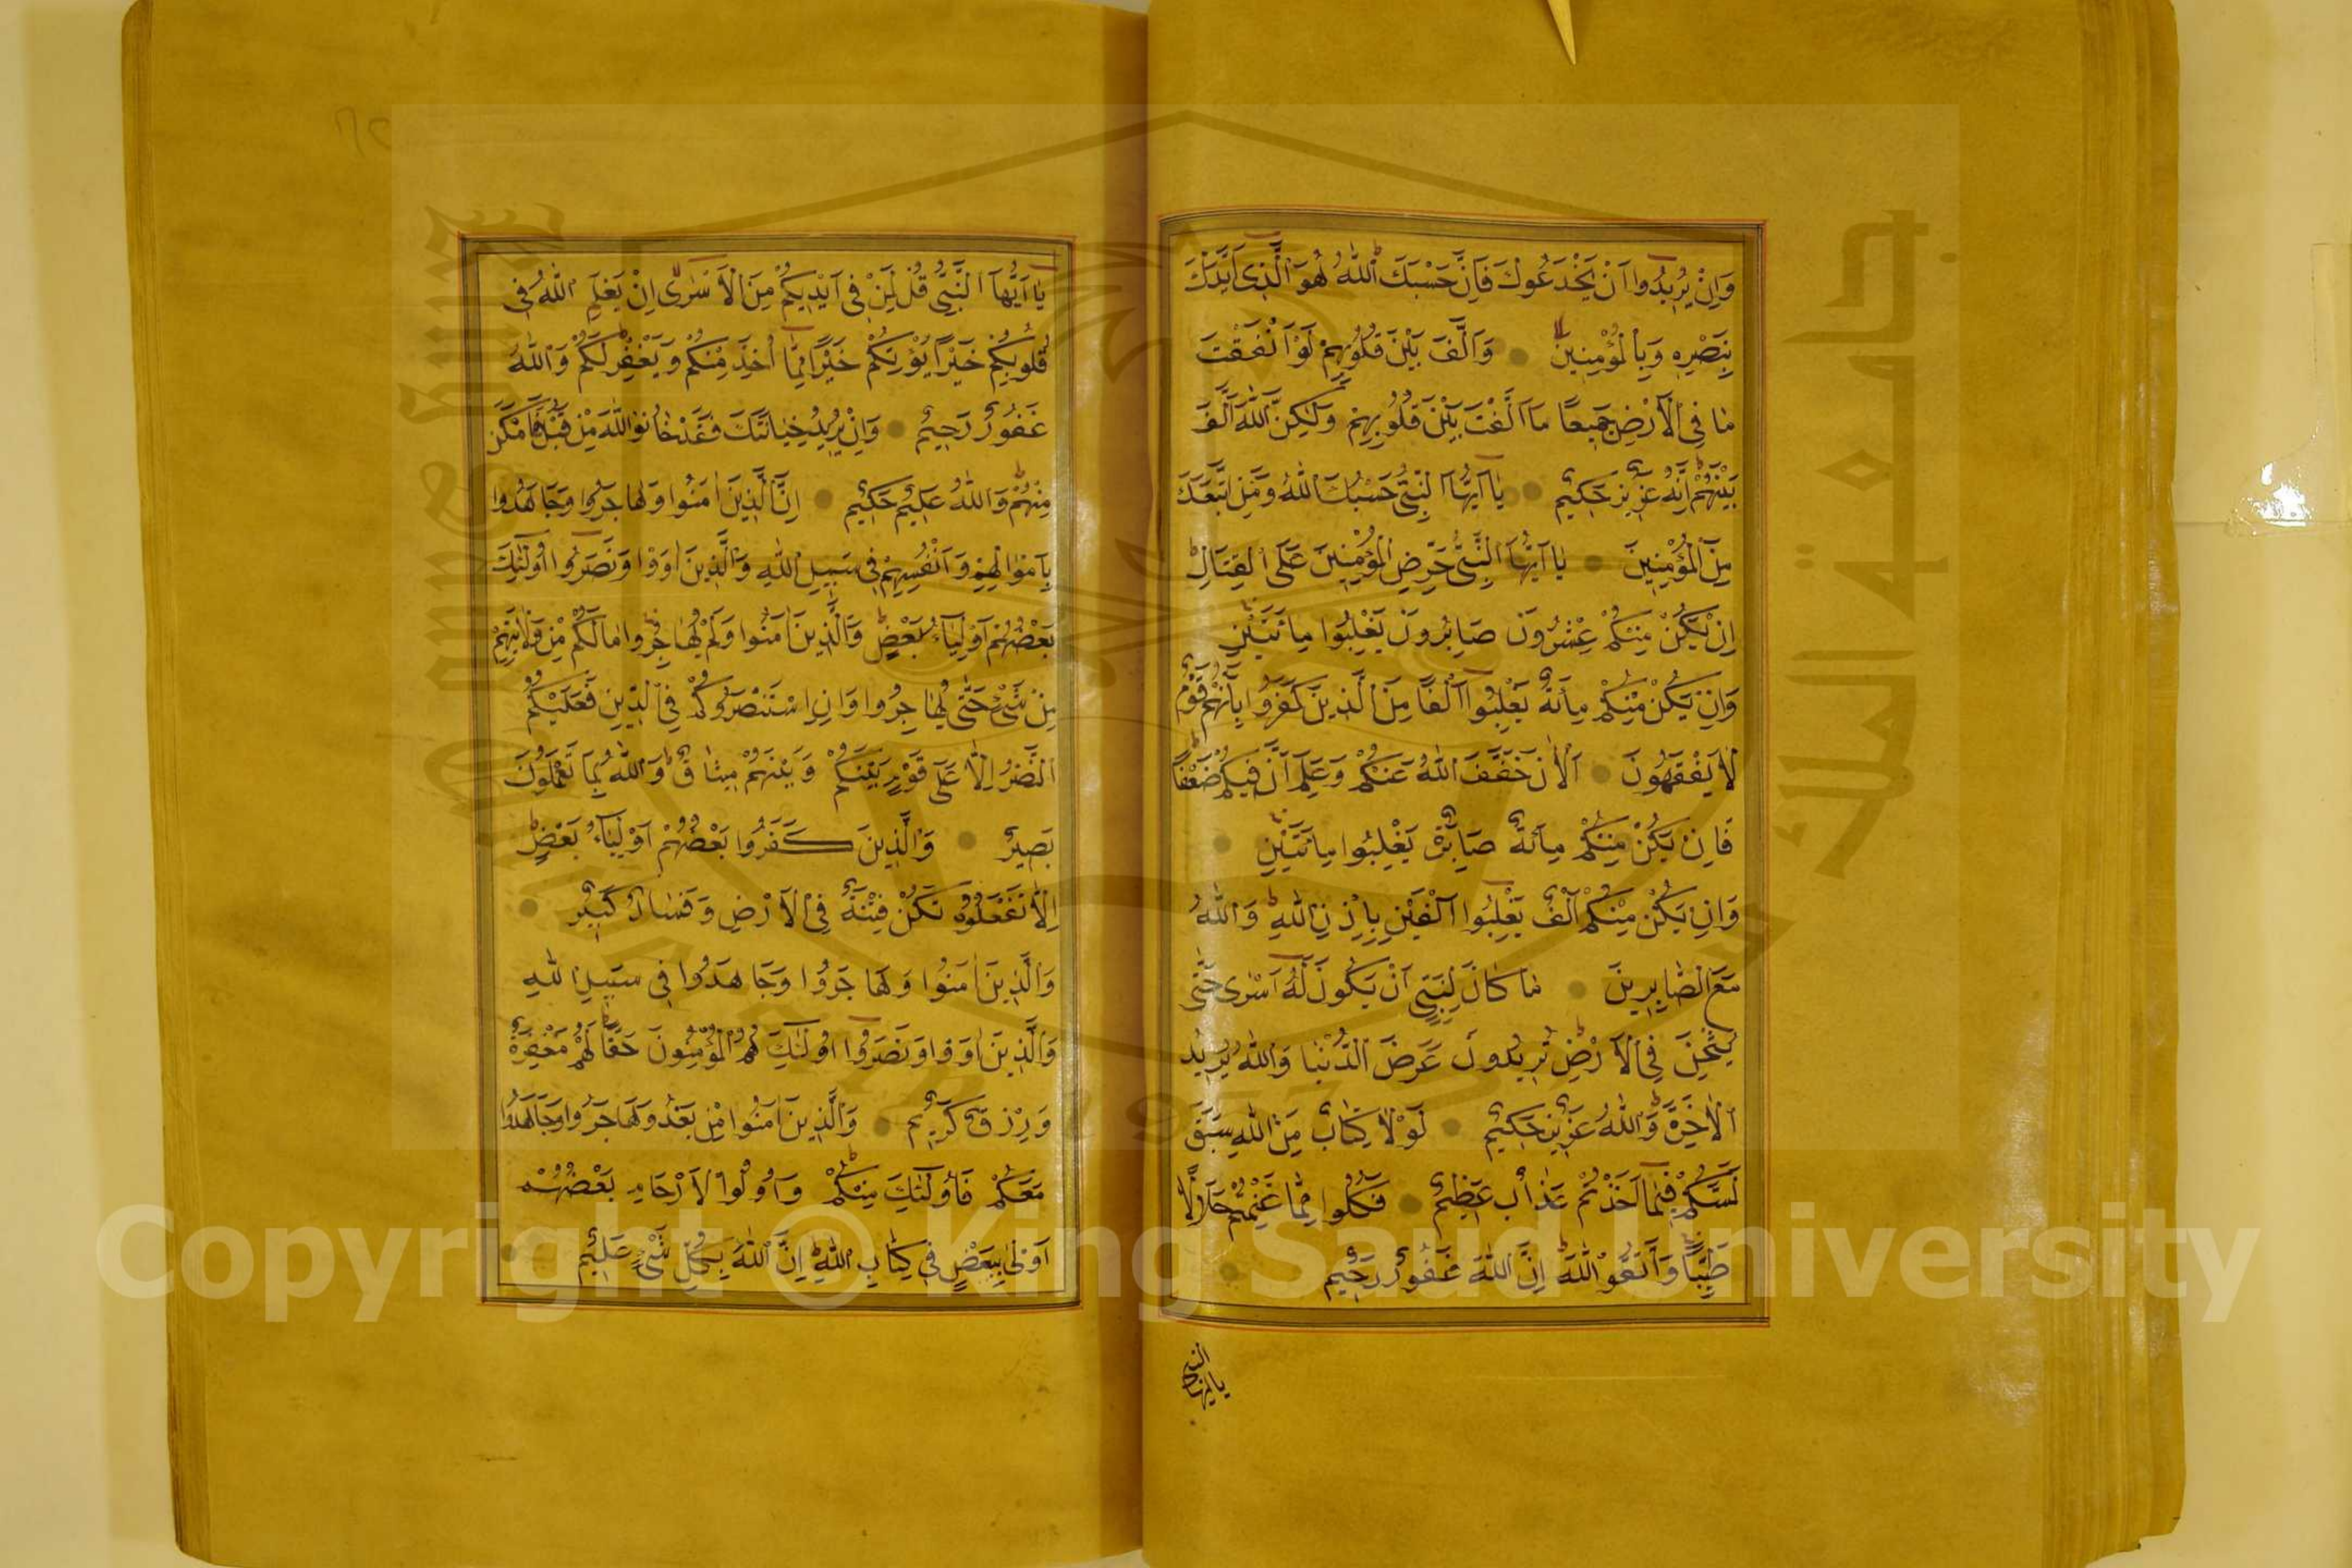 وَاِنْ يُرِيدُوا اَنْ يَخْدَعُوكَ فَاِنَّ حَسْبَكَ اللّٰهُ هُوَ الَّذِى اَيَّدَكَ
بِنَصْرِهِ وَبِالْمُؤْمِنِينَ وَاَلَّفَ بَيْنَ قُلُوبِهِمْ لَوْ اَنْفَقْتَ
مَا فِى الْاَرْضِ جَمِيعًا مَا اَلَّفْتَ بَيْنَ قُلُوبِهِمْ وَلٰكِنَّ اللّٰهَ اَلَّفَ
بَيْنَهُمْ اِنَّهُ عَزِيزٌ حَكِيمٌ يَا اَيُّهَا النَّبِىُّ حَسْبُكَ اللّٰهُ وَمَنِ اتَّبَعَكَ
مِنَ الْمُؤْمِنِينَ يَا اَيُّهَا النَّبِىُّ حَرِّضِ الْمُؤْمِنِينَ عَلَى الْقِتَالِ
اِنْ يَكُنْ مِنْكُمْ عِشْرُونَ صَابِرُونَ يَغْلِبُوا مِائَتَيْنِ
وَاِنْ يَكُنْ مِنْكُمْ مِائَةٌ يَغْلِبُوا اَلْفًا مِنَ الَّذِينَ كَفَرُوا بِاَنَّهُمْ قَوْمٌ
لَا يَفْقَهُونَ اَلْاٰنَ خَفَّفَ اللّٰهُ عَنْكُمْ وَعَلِمَ اَنَّ فِيكُمْ ضَعْفًا
فَاِنْ يَكُنْ مِنْكُمْ مِائَةٌ صَابِرَةٌ يَغْلِبُوا مِائَتَيْنِ
وَاِنْ يَكُنْ مِنْكُمْ اَلْفٌ يَغْلِبُوا اَلْفَيْنِ بِاِذْنِ اللّٰهِ وَاللّٰهُ
مَعَ الصَّابِرِينَ مَا كَانَ لِنَبِىٍّ اَنْ يَكُونَ لَهُ اَسْرٰى حَتّٰى
يُثْخِنَ فِى الْاَرْضِ تُرِيدُونَ عَرَضَ الدُّنْيَا وَاللّٰهُ يُرِيدُ
الْاٰخِرَةَ وَاللّٰهُ عَزِيزٌ حَكِيمٌ لَوْلَا كِتَابٌ مِنَ اللّٰهِ سَبَقَ
لَمَسَّكُمْ فِيمَا اَخَذْتُمْ عَذَابٌ عَظِيمٌ فَكُلُوا مِمَّا غَنِمْتُمْ حَلَالًا
طَيِّبًا وَاتَّقُوا اللّٰهَ اِنَّ اللّٰهَ غَفُورٌ رَحِيمٌ
يا ايها النبى
يَا اَيُّهَا النَّبِىُّ قُلْ لِمَنْ فِى اَيْدِيكُمْ مِنَ الْاَسْرٰى اِنْ يَعْلَمِ اللّٰهُ فِى
قُلُوبِكُمْ خَيْرًا يُؤْتِكُمْ خَيْرًا مِمَّا اُخِذَ مِنْكُمْ وَيَغْفِرْ لَكُمْ وَاللّٰهُ
غَفُورٌ رَحِيمٌ وَاِنْ يُرِيدُوا خِيَانَتَكَ فَقَدْ خَانُوا اللّٰهَ مِنْ قَبْلُ فَاَمْكَنَ
مِنْهُمْ وَاللّٰهُ عَلِيمٌ حَكِيمٌ اِنَّ الَّذِينَ اٰمَنُوا وَهَاجَرُوا وَجَاهَدُوا
بِاَمْوَالِهِمْ وَاَنْفُسِهِمْ فِى سَبِيلِ اللّٰهِ وَالَّذِينَ اٰوَوْا وَنَصَرُوا اُولٰئِكَ
بَعْضُهُمْ اَوْلِيَاءُ بَعْضٍ وَالَّذِينَ اٰمَنُوا وَلَمْ يُهَاجِرُوا مَالَكُمْ مِنْ وَلَايَتِهِمْ
مِنْ شَىْءٍ حَتّٰى يُهَاجِرُوا وَاِنِ اسْتَنْصَرُوكُمْ فِى الدِّينِ فَعَلَيْكُمُ
النَّصْرُ اِلَّا عَلٰى قَوْمٍ بَيْنَكُمْ وَبَيْنَهُمْ مِيثَاقٌ وَاللّٰهُ بِمَا تَعْمَلُونَ
بَصِيرٌ وَالَّذِينَ كَفَرُوا بَعْضُهُمْ اَوْلِيَاءُ بَعْضٍ
اِلَّا تَفْعَلُوهُ تَكُنْ فِتْنَةٌ فِى الْاَرْضِ وَفَسَادٌ كَبِيرٌ
وَالَّذِينَ اٰمَنُوا وَهَاجَرُوا وَجَاهَدُوا فِى سَبِيلِ اللّٰهِ
وَالَّذِينَ اٰوَوْا وَنَصَرُوا اُولٰئِكَ هُمُ الْمُؤْمِنُونَ حَقًّا لَهُمْ مَغْفِرَةٌ
وَرِزْقٌ كَرِيمٌ وَالَّذِينَ اٰمَنُوا مِنْ بَعْدُ وَهَاجَرُوا وَجَاهَدُوا
مَعَكُمْ فَاُولٰئِكَ مِنْكُمْ وَاُولُوا الْاَرْحَامِ بَعْضُهُمْ
اَوْلٰى بِبَعْضٍ فِى كِتَابِ اللّٰهِ اِنَّ اللّٰهَ بِكُلِّ شَىْءٍ عَلِيمٌ
Copyright © King Saud University